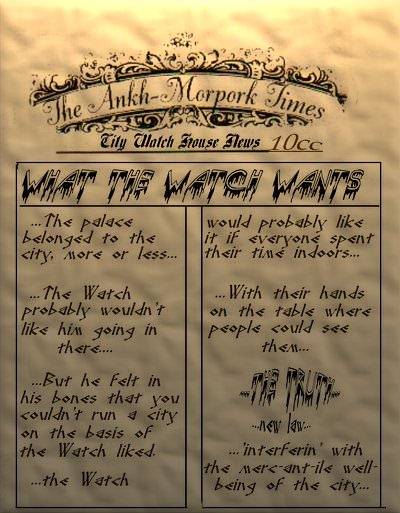 The Ankh-Morpork Times
City Watch House News 10cc
WHAT THE WATCH WANTS
...The palace
belonged to the
city, more or less...
...The Watch
probably wouldn't
like him going in
there....
...But he felt in
his bones that you
couldn't run a city
on the basis of
the Watch liked.
...the Watch
would probably like
it if everyone spent
their time indoors...
...With their hands
on the table where
people could see
them...
...THE TRUTH...
...new law...
...'interferin' with
the merc-ant-ile well-
being of the city...